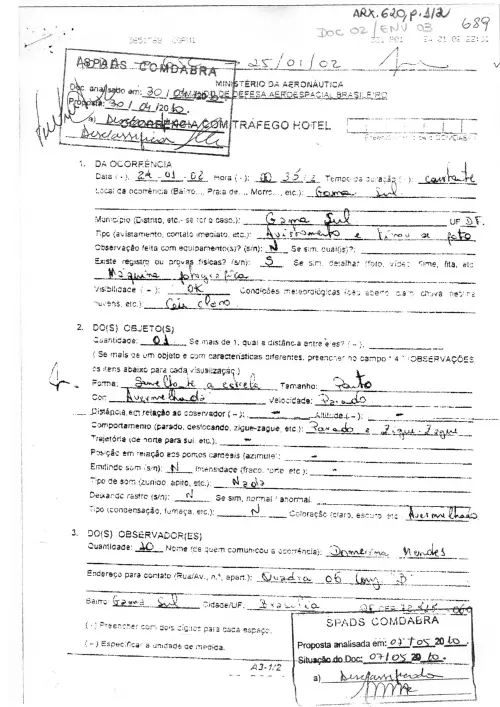 ARX.620,p.1/2
DOC 02/ENV 03
689
25/01/02
SPADS COMDABRA
Doc. analisado em: 30/04/2010
Proposta: 30/04/2010
a) Desclassificar
MINISTÉRIO DA AERONÁUTICA
DE DEFESA AEROESPACIAL BRASILEIRO
OCORRÊNCIA COM TRÁFEGO HOTEL
1. DA OCORRÊNCIA
Data (-): 24-01-02 Hora (-): 00 35 Tempo de duração (-): constante
Local da ocorrência (Bairro..., Praia de..., Morro..., etc.): Gama Sul
Município (Distrito, etc.- se for o caso.): Gama Sul UF DF.
Tipo (avistamento, contato imediato, etc.): Avistamento e tirou se foto
Observação feita com equipamento(s)? (s/n): N Se sim, qual(is)?:
Existe registro ou provas físicas? (s/n): S Se sim, detalhar (foto, vídeo, filme, fita, etc
Máquina fotográfica
Visibilidade (-): OK Condições meteorológicas (céu aberto, claro, chuva, neblina
nuvens, etc.): Céu claro
2. DO(S) OBJETO(S)
Quantidade: 01 Se mais de 1, qual a distância entre eles? (-):
( Se mais de um objeto e com características diferentes, preencher no campo "4" (OBSERVAÇÕES
os itens abaixo para cada visualização.)
Forma: Semelhante a estrela Tamanho: Ponto
Cor: Avermelhada Velocidade: Parado
Distância em relação ao observador (-): - Altitude (-): -
Comportamento (parado, deslocando, zigue-zague, etc.): Parado e Zigue-Zague
Trajetória (de norte para sul, etc.): -
Posição em relação aos pontos cardeais (azimute): -
Emitindo som (s/n): N Intensidade (fraco, forte, etc.): -
Tipo de som (zunido, apito, etc.): Nada
Deixando rastro (s/n): N Se sim, normal / anormal
Tipo (condensação, fumaça, etc.): N Coloração (claro, escuro, etc Avermelhado
3. DO(S) OBSERVADOR(ES)
Quantidade: 10 Nome (de quem comunicou a ocorrência): Mendes
Endereço para contato (Rua/Av., n.º, apart.): Quadra 06 Conj. "D"
Bairro: Gama Sul Cidade/UF: Brasília
(-) Preencher com dois dígitos para cada espaço.
(-) Especificar a unidade de medida.
A3-1/2
SPADS COMDABRA
Proposta analisada em: 07/05 2010
Situação do Doc: 07/05 2010.
a) Desclassificado